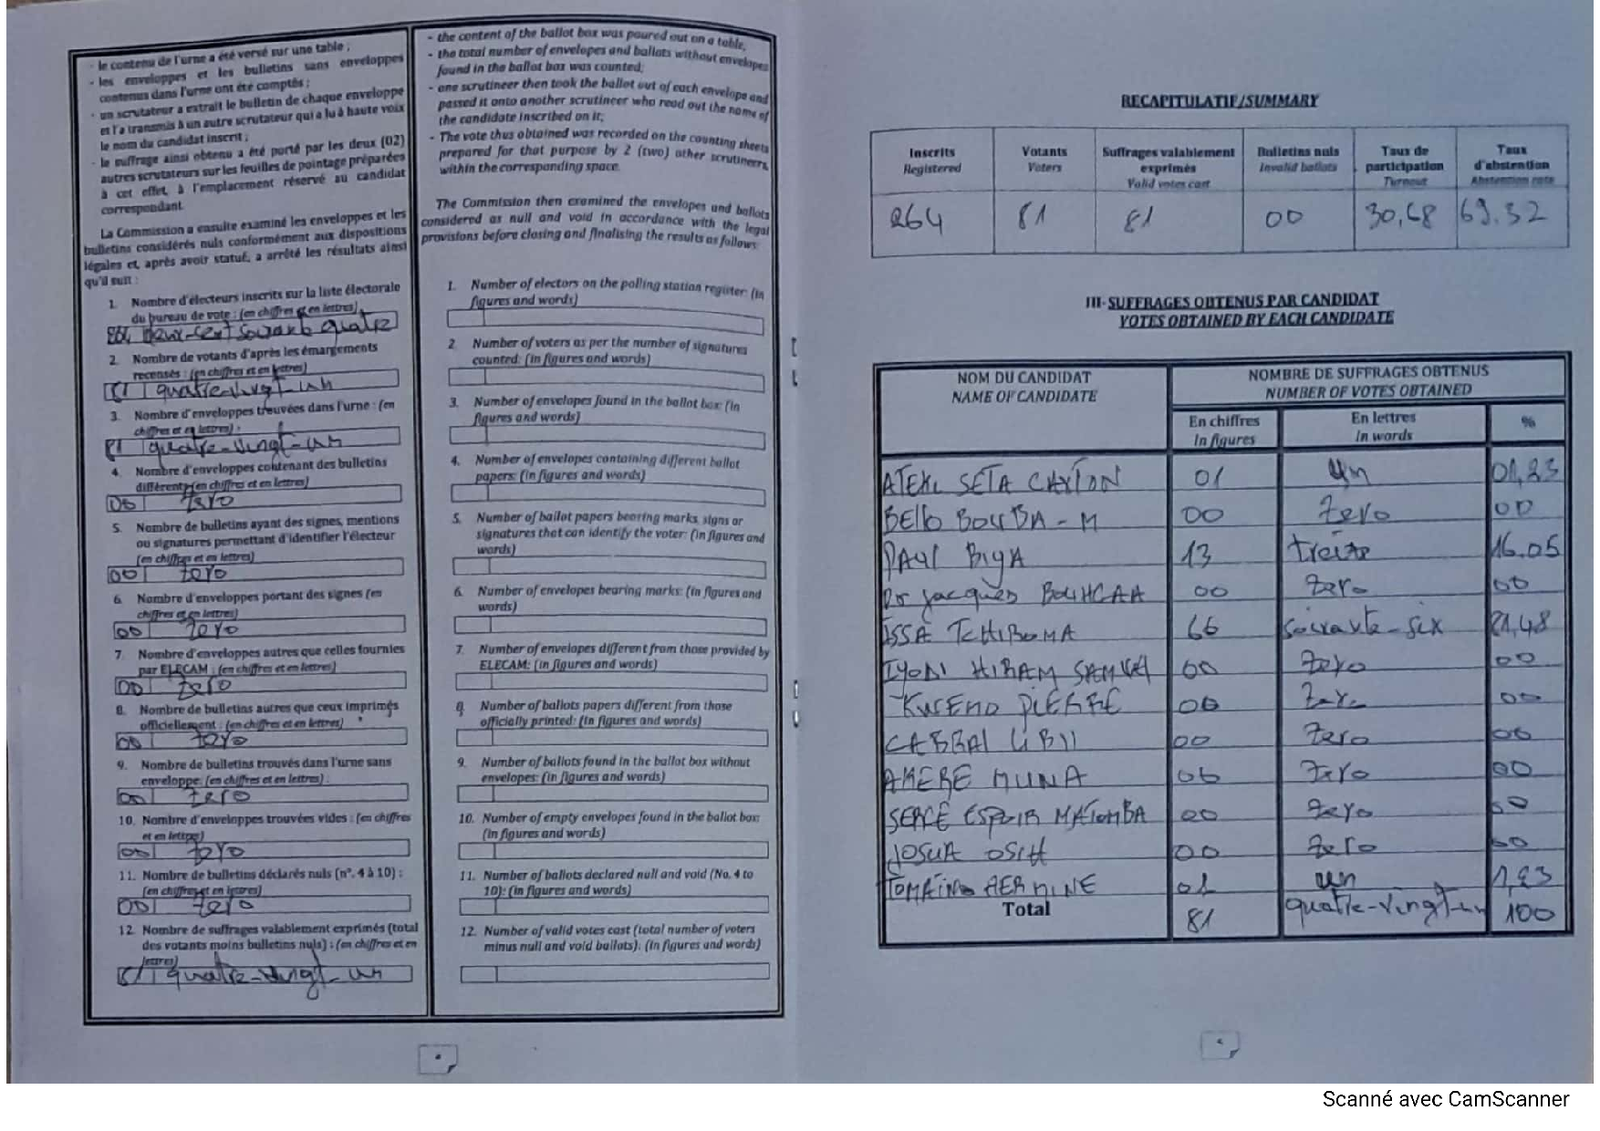 - le contenu de l'urne a été versé sur une table ;
- les enveloppes et les bulletins sans enveloppes
contenus dans l'urne ont été comptés ;
- un scrutateur a extrait le bulletin de chaque enveloppe
et l'a transmis à un autre scrutateur qui a lu à haute voix
le nom du candidat inscrit ;
- le suffrage ainsi obtenu a été porté par les deux (02)
autres scrutateurs sur les feuilles de pointage préparées
à cet effet, à l'emplacement réservé au candidat
correspondant.
La Commission a ensuite examiné les enveloppes et les
bulletins considérés nuls conformément aux dispositions
légales et, après avoir statué, a arrêté les résultats ainsi
qu'il suit :
1. Nombre d'électeurs inscrits sur la liste électorale
du bureau de vote : (en chiffres et en lettres)
264 deux-cent soixante quatre
2. Nombre de votants d'après les émargements
recensés : (en chiffres et en lettres)
81 quatre-vingt-un
3. Nombre d'enveloppes trouvées dans l'urne : (en
chiffres et en lettres) :
81 quatre-vingt-un
4. Nombre d'enveloppes contenant des bulletins
différents (en chiffres et en lettres)
00 zero
5. Nombre de bulletins ayant des signes, mentions
ou signatures permettant d'identifier l'électeur
(en chiffres et en lettres)
00 zero
6. Nombre d'enveloppes portant des signes (en
chiffres et en lettres)
00 zero
7. Nombre d'enveloppes autres que celles fournies
par ELECAM : (en chiffres et en lettres)
00 zero
8. Nombre de bulletins autres que ceux imprimés
officiellement : (en chiffres et en lettres)
00 zero
9. Nombre de bulletins trouvés dans l'urne sans
enveloppe: (en chiffres et en lettres) :
00 zero
10. Nombre d'enveloppes trouvées vides : (en chiffres
et en lettres)
00 zero
11. Nombre de bulletins déclarés nuls (n°. 4 à 10) :
(en chiffres et en lettres)
00 zero
12. Nombre de suffrages valablement exprimés (total
des votants moins bulletins nuls) : (en chiffres et en
lettres)
81 quatre-vingt-un
- the content of the ballot box was poured out on a table,
- the total number of envelopes and ballots without envelopes
found in the ballot box was counted;
- one scrutineer then took the ballot out of each envelope and
passed it onto another scrutineer who read out the name of
the candidate inscribed on it;
- The vote thus obtained was recorded on the counting sheets
prepared for that purpose by 2 (two) other scrutineers,
within the corresponding space.
The Commission then examined the envelopes and ballots
considered as null and void in accordance with the legal
provisions before closing and finalising the results as follows:
1. Number of electors on the polling station register: (in
figures and words)
2. Number of voters as per the number of signatures
counted: (in figures and words)
3. Number of envelopes found in the ballot box: (in
figures and words)
4. Number of envelopes containing different ballot
papers: (in figures and words)
5. Number of ballot papers bearing marks, signs or
signatures that can identify the voter: (in figures and
words)
6. Number of envelopes bearing marks: (in figures and
words)
7. Number of envelopes different from those provided by
ELECAM: (in figures and words)
8. Number of ballots papers different from those
officially printed: (in figures and words)
9. Number of ballots found in the ballot box without
envelopes: (in figures and words)
10. Number of empty envelopes found in the ballot box:
(in figures and words)
11. Number of ballots declared null and void (No. 4 to
10): (in figures and words)
12. Number of valid votes cast (total number of voters
minus null and void ballots): (in figures and words)
RECAPITULATIF/SUMMARY
Inscrits Votants Suffrages valablement exprimés Bulletins nuls Taux de participation Taux d'abstention
Registered Voters Valid votes cast Invalid ballots Turnout Abstention rate
264 81 81 00 30,68 69.32
III- SUFFRAGES OBTENUS PAR CANDIDAT
VOTES OBTAINED BY EACH CANDIDATE
NOM DU CANDIDAT NOMBRE DE SUFFRAGES OBTENUS
NAME OF CANDIDATE NUMBER OF VOTES OBTAINED
En chiffres En lettres %
In figures In words
ATEKI SETA CAXTON 01 un 01,23
BELLO BOUBA - M 00 zero 00
PAUL BIYA 13 treize 16.05
Dr Jacques BOUHGAA 00 zero 00
ISSA TCHIROMA 66 soixante-six 81,48
IYODI HIRAM SAMUEL 00 zero 00
KWEMO PIERRE 00 zero 00
CABRAL LIBII 00 zero 00
AKERE MUNA 00 zero 00
SERGE ESPOIR MATOMBA 00 zero 00
JOSUA OSIH 00 zero 00
TOMAINO HERMINE 01 un 1,23
Total 81 quatre-vingt-un 100
Scanné avec CamScanner